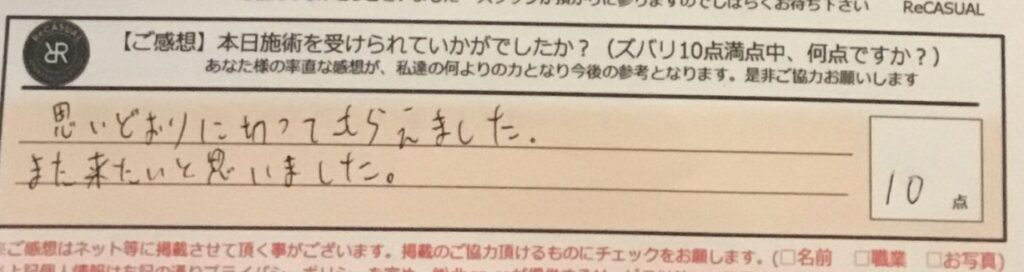 しばらくお待ち下さい ReCASUAL
ReCASUAL
【ご感想】本日施術を受けられていかがでしたか？（ズバリ10点満点中、何点ですか？）
あなた様の率直な感想が、私達の何よりの力となり今後の参考となります。是非ご協力お願いします
思いどおりに切ってもらえました.
また来たいと思いました。
10 点
※ご感想はネット等に掲載させて頂く事がございます。掲載のご協力頂けるものにチェックをお願します。(□名前 □職業 □お写真)